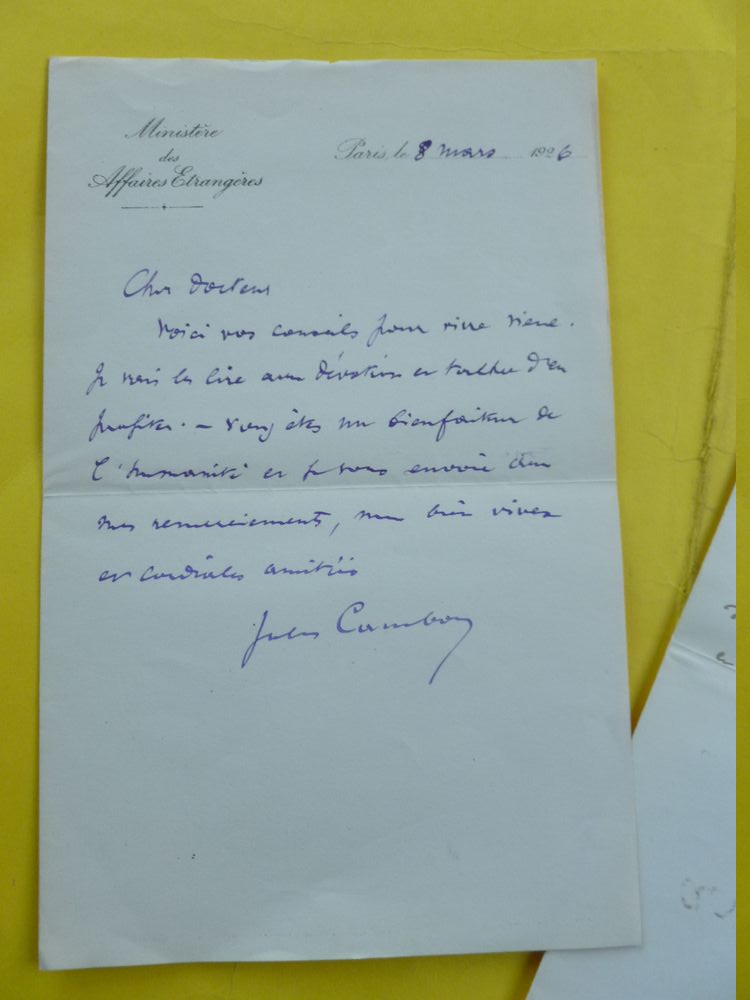 Ministère
des
Affaires Etrangères
Paris, le 8 mars 1926
Cher docteur
Voici vos conseils pour vivre vieux.
Je vais les lire avec dévotion et tâcher d'en
profiter. — Vous êtes un bienfaiteur de
l'humanité et je vous envoie avec
mes remerciements, mes bien vives
et cordiales amitiés
Jules Cambon